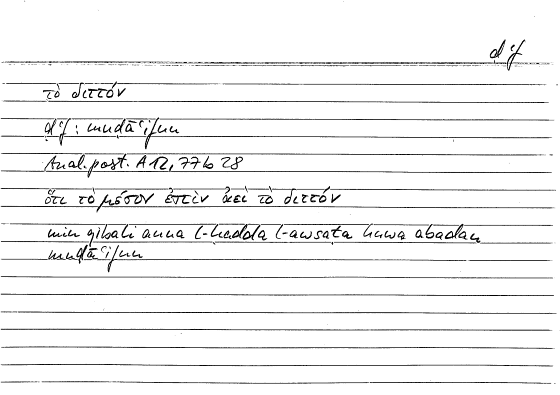 ḍʿf
τὸ διττόν
ḍʿf : muḍāʿifun
Anal. post. A 12, 77 b 28
ὅτι τὸ μέσον ἐστὶν ἀεὶ τὸ διττόν
min qibali anna l-ḥadda l-awsaṭa huwa abadan
muḍāʿifun